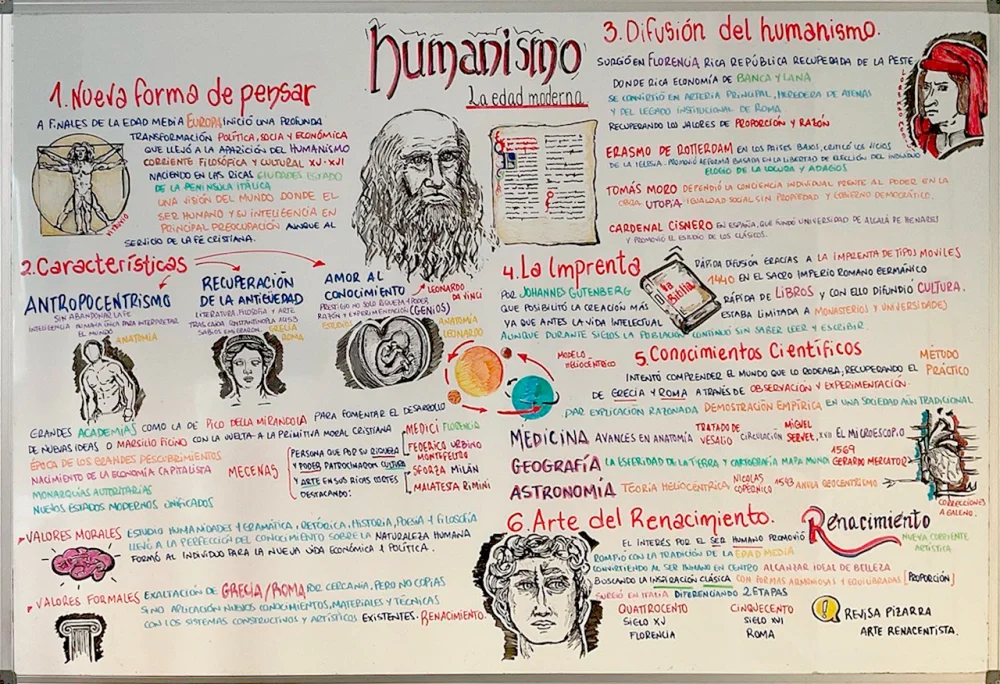 humanismo
La edad moderna
1. Nueva forma de pensar
A FINALES DE LA EDAD MEDIA EUROPA INICIÓ UNA PROFUNDA
TRANSFORMACIÓN POLÍTICA, SOCIA Y ECONÓMICA
QUE LLEJÓ A LA APARICIÓN DEL HUMANISMO
CORRIENTE FILOSÓFICA Y CULTURAL XV-XVI
NACIENDO EN LAS RICAS CIUDADES ESTADO
DE LA PENINSULA ITÁLICA
UNA VISIÓN DEL MUNDO DONDE EL
SER HUMANO Y SU INTELIGENCIA EN
PRINCIPAL PREOCUPACIÓN AUNQUE AL
SERVICIO DE LA FÉ CRISTIANA.
VITRUVIO
2. Características
ANTROPOCENTRISMO
SIN ABANDONAR LA FE
INTELIGENCIA HUMANA ÚNICA PARA INTERPRETAR
EL MUNDO
ANATOMÍA
RECUPERACIÓN
DE LA ANTIGÜEDAD
LITERATURA, FILOSOFÍA Y ARTE
TRAS CAIDA CONSTANTINOPLA 1453
SABIOS EMIGRARON
GRECIA
ROMA
AMOR AL
CONOCIMIENTO
PRESTIGIO NO SOLO RIQUEZA Y PODER
RAZÓN Y EXPERIMENTACIÓN (GENIOS)
ESTUDIOS
LEONARDO
DA VINCI
ANATOMÍA
LEONARDO
GRANDES ACADEMIAS COMO LA DE PICO DELLA MIRANDOLA PARA FOMENTAR EL DESARROLLO
DE NUEVAS IDEAS O MARSILIO FICINO CON LA VUELTA A LA PRIMITIVA MORAL CRISTIANA
ÉPOCA DE LOS GRANDES DESCUBRIMIENTOS
NACIMIENTO DE LA ECONOMÍA CAPITALISTA
MONARQUÍAS AUTORITARIAS
NUEVOS ESTADOS MODERNOS UNIFICADOS
MECENAS
PERSONA QUE POR SU RIQUEZA
Y PODER PATROCINADOR CULTURA
Y ARTE EN SUS RICAS CORTES
DESTACANDO:
MEDICI FLORENCIA
FEDERICO URBINO
MONTEFELTRO
SFORZA MILÁN
MALATESTA RIMINI
VALORES MORALES ESTUDIO HUMANIDADES Y GRAMÁTICA, RETÓRICA, HISTORIA, POESÍA Y FILOSOFÍA
LLEVÓ A LA PERFECCIÓN DEL CONOCIMIENTO SOBRE LA NATURALEZA HUMANA
FORMÓ AL INDIVIDUO PARA LA NUEVA VIDA ECONÓMICA Y POLÍTICA.
VALORES FORMALES EXALTACIÓN DE GRECIA/ROMA POR CERCANIA, PERO NO COPIAS
SINO APLICACIÓN NUEVOS CONOCIMIENTOS, MATERIALES Y TÉCNICAS
CON LOS SISTEMAS CONSTRUCTIVOS Y ARTÍSTICOS EXISTENTES. RENACIMIENTO.
3. Difusión del humanismo.
SURGIÓ EN FLORENCIA, RICA REPÚBLICA RECUPERADA DE LA PESTE
DONDE RICA ECONOMÍA DE BANCA Y LANA
SE CONVIRTIÓ EN ARTERIA PRINCIPAL, HEREDERA DE ATENAS
Y DEL LEGADO INSTITUCIONAL DE ROMA
RECUPERANDO LOS VALORES DE PROPORCIÓN Y RAZÓN
ERASMO DE ROTTERDAM EN LOS PAISES BAJOS, CRITICÓ LOS VICIOS
DE LA IGLESIA. PROMOVIÓ REFORMA BASADA EN LA LIBERTAD DE ELECCIÓN DEL INDIVIDUO
ELOGIO DE LA LOCURA Y ADAGIOS
TOMÁS MORO DEFENDIÓ LA CONCIENCIA INDIVIDUAL FRENTE AL PODER EN LA
OBRA UTOPÍA. IGUALDAD SOCIAL SIN PROPIEDAD Y GOBIERNO DEMOCRÁTICO.
CARDENAL CISNERO EN ESPAÑA, QUE FUNDÓ UNIVERSIDAD DE ALCALÁ DE HENARES
Y PROMOVIÓ EL ESTUDIO DE LOS CLÁSICOS.
4. La Imprenta
POR JOHANNES GUTENBERG
QUE POSIBILITÓ LA CREACIÓN MÁS
YA QUE ANTES LA VIDA INTELECTUAL
AUNQUE DURANTE SIGLOS LA POBLACIÓN CONTINUÓ SIN SABER LEER Y ESCRIBIR.
la Biblia
RÁPIDA DIFUSIÓN GRACIAS A LA IMPRENTA DE TIPOS MOVILES
1440 EN EL SACRO IMPERIO ROMANO GERMÁNICO
RÁPIDA DE LIBROS Y CON ELLO DIFUNDIÓ CULTURA.
ESTABA LIMITADA A MONASTERIOS Y UNIVERSIDADES
MODELO
HELIOCÉNTRICO
5. Conocimientos Científicos
MÉTODO
PRÁCTICO
INTENTÓ COMPRENDER EL MUNDO QUE LO RODEABA, RECUPERANDO EL
DE GRECIA Y ROMA A TRAVÉS DE OBSERVACIÓN Y EXPERIMENTACIÓN:
DAR EXPLICACIÓN RAZONADA DEMOSTRACIÓN EMPÍRICA EN UNA SOCIEDAD AÚN TRADICIONAL
MEDICINA AVANCES EN ANATOMÍA TRATADO DE VESALIO CIRCULACIÓN MIGUEL SERVET, XVII EL MICROSCOPIO
GEOGRAFÍA LA ESFERIDAD DE LA TIERRA Y CARTOGRAFÍA MAPA MUNDI 1569 GERARDO MERCATOR
ASTRONOMÍA TEORÍA HELIOCÉNTRICA, NICOLAS COPERNICO 1543 ANTES GEOCENTRISMO
CORRECCIONES
A GALENO.
6. Arte del Renacimiento.
EL INTERÉS POR EL SER HUMANO PROMOVIÓ
Renacimiento
NUEVA CORRIENTE
ARTÍSTICA
ROMPIÓ CON LA TRADICIÓN DE LA EDAD MEDIA
CONVIRTIENDO AL SER HUMANO EN CENTRO ALCANZAR IDEAL DE BELLEZA
BUSCANDO LA INSPIRACIÓN CLÁSICA CON FORMAS ARMONIOSAS Y EQUILIBRADAS [PROPORCIÓN]
SURGIÓ EN ITALIA DIFERENCIANDO 2 ETAPAS
QUATTROCENTO
SIGLO XV
FLORENCIA
CINQUECENTO
SIGLO XVI
ROMA
! REVISA PIZARRA
ARTE RENACENTISTA.